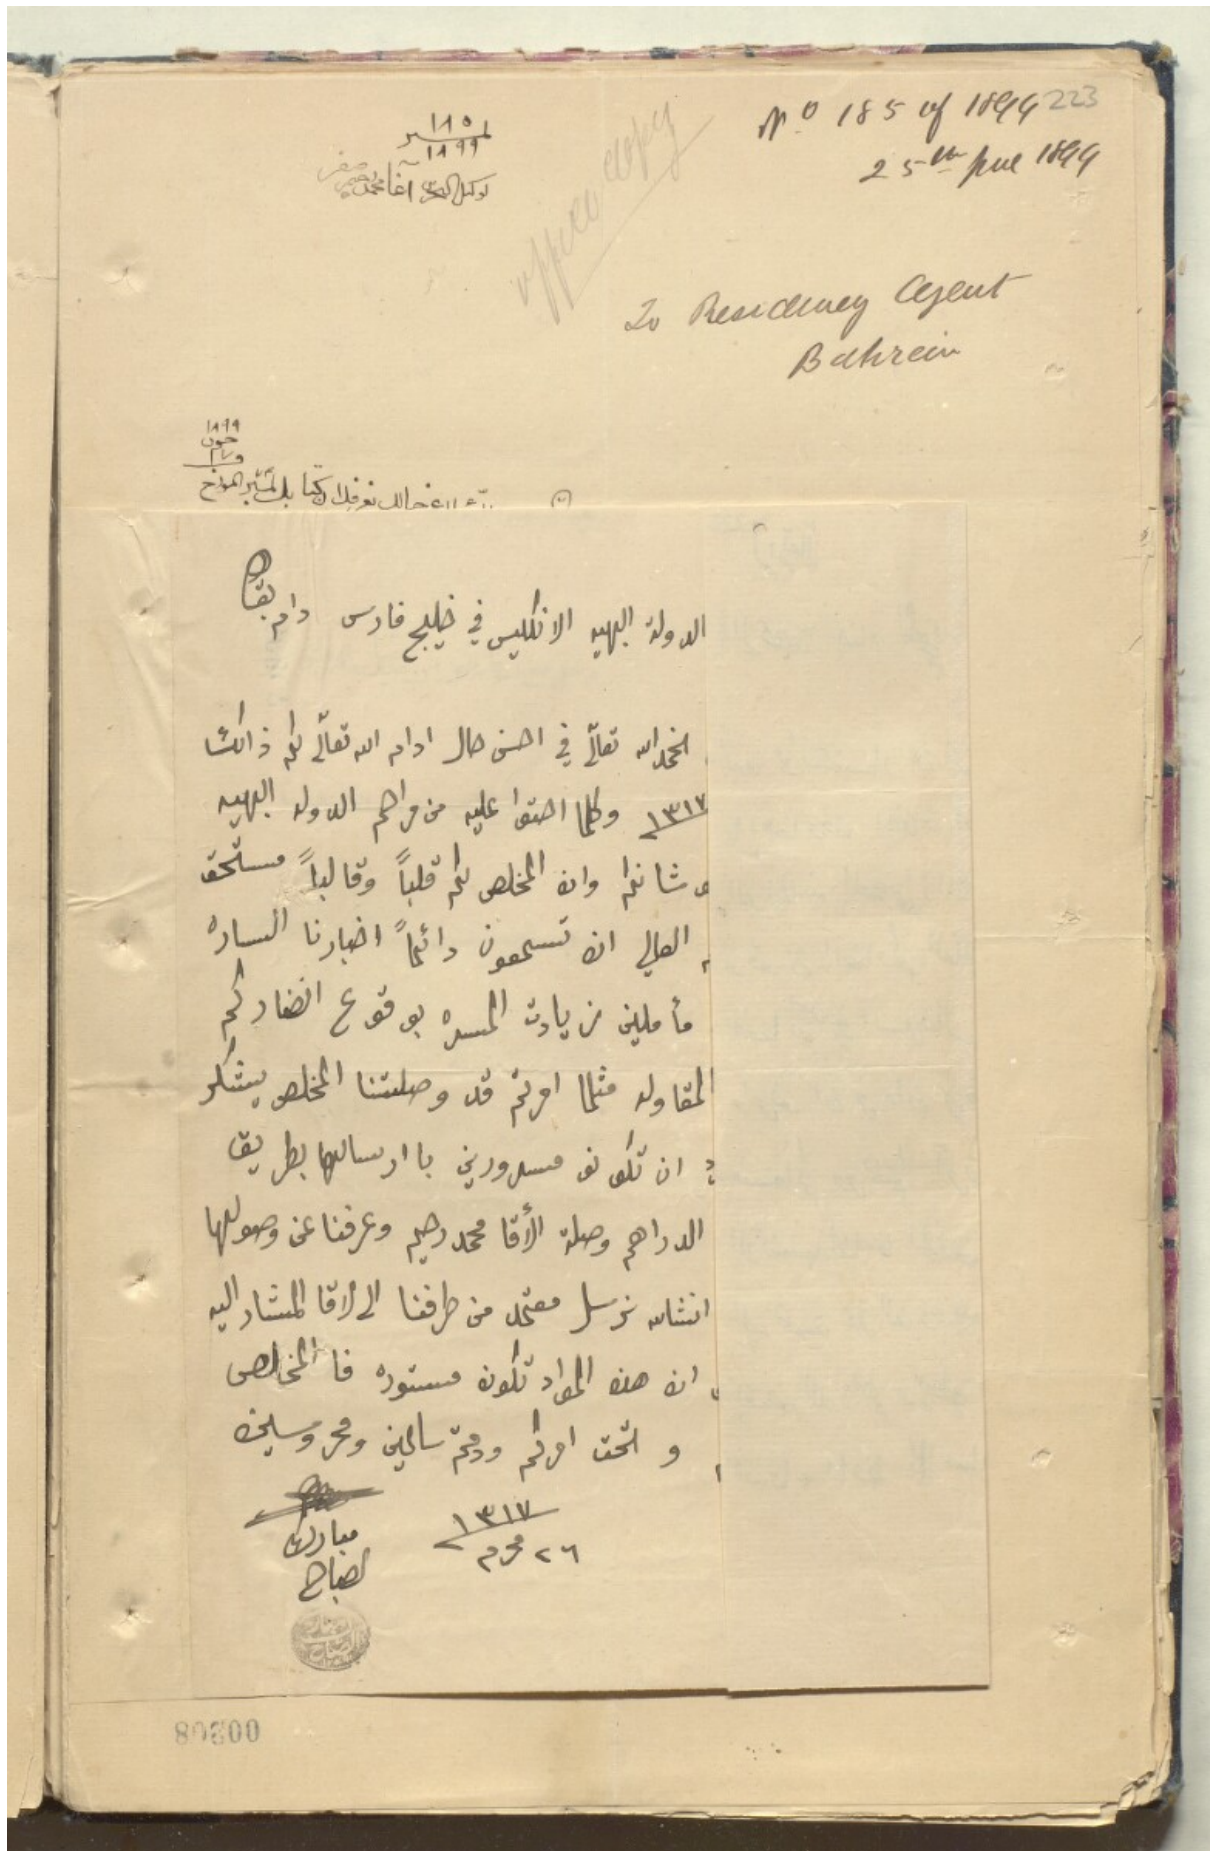 No 185 of 1899 223
25th June 1899
نمبر ١٨٥
١٨٩٩
لوكيل البحرين آغا محمد رحيم صفر
office copy
To Residency Agent
Bahrein
١٨٩٩
جون
الدولة البهيه الانكليس في خليج فارس دام بقاه
الحمد الله تعالى في احسن حال ادام الله تعالى لكم
١٣١٧ وكلما احتوا عليه من مراحم الدوله البهيه
شانكم وان المخلص لكم قلباً وقالباً مستحق
العالي ان تسمعون دائماً اخبارنا الساره
مأملين زيادت المسره بوقوع انضاركم
المقاوله مثلما امرتم قد وصلتنا المخلص يتشكر
ان تكونو مسرورين با ارسالها بطريق
الدراهم وصلة الأقا محمد رحيم وعرفنا عن وصولها
انشاالله نرسل معتمد من طرفنا الى لاقا المشار اليه
ان هذه المواد تكون مستوره فا المخلص
و تحت امركم ودمتم سالمين ومحروسين
١٣١٧
٢٦ محرم
مبارك
الصباح
00308